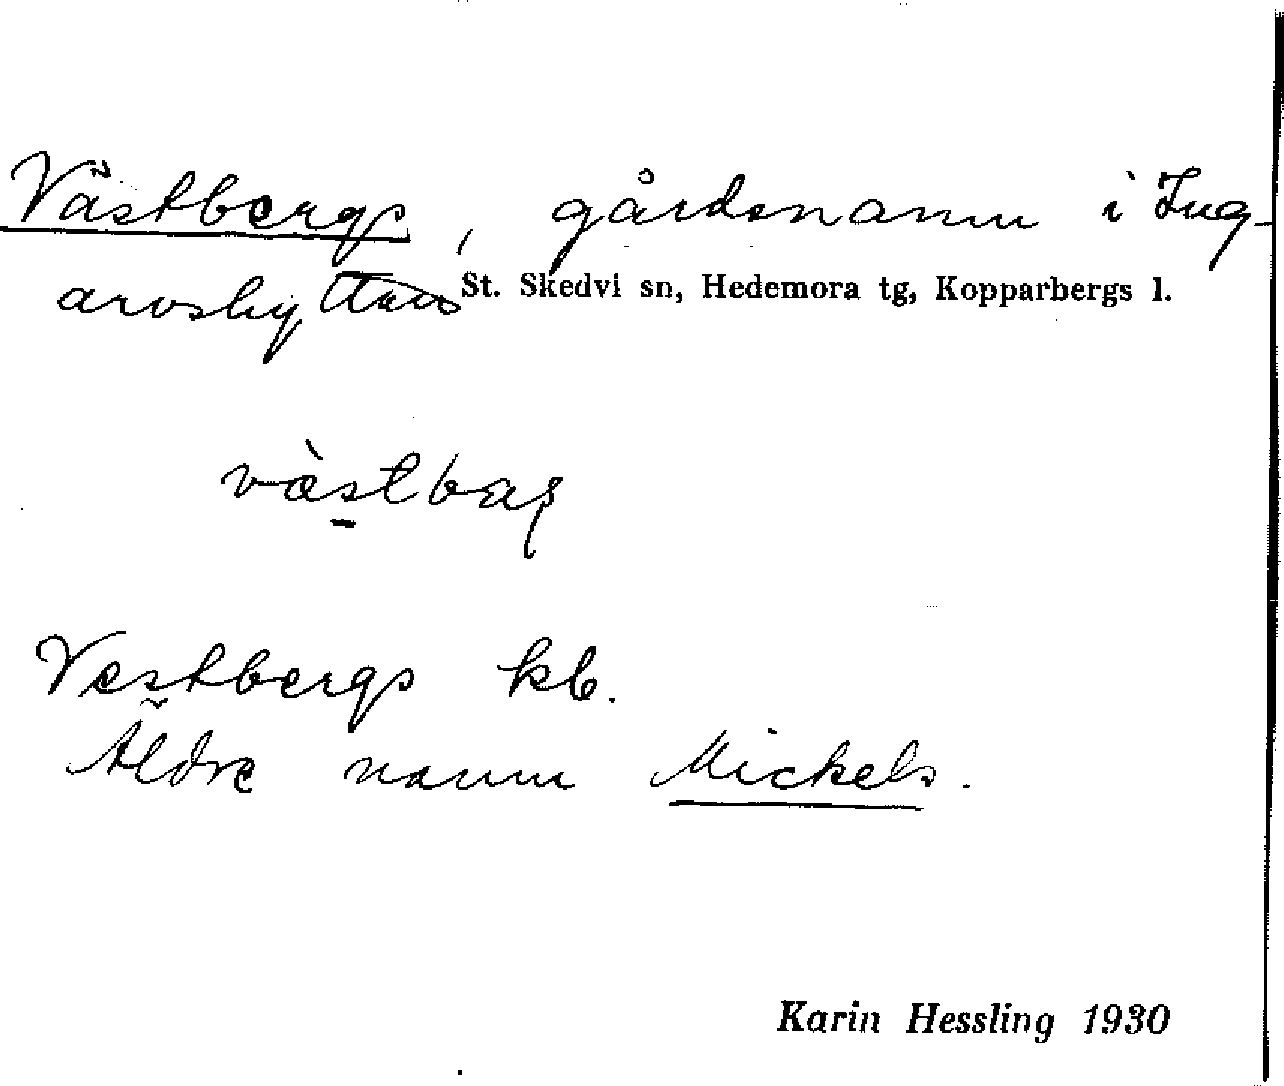 Västbergs, gårdsnamn i Ing-
arvshyttan St. Skedvi sn, Hedemora tg, Kopparbergs l.
Vestbergs kb.
Äldre namn Mickels.
Karin Hessling 1930